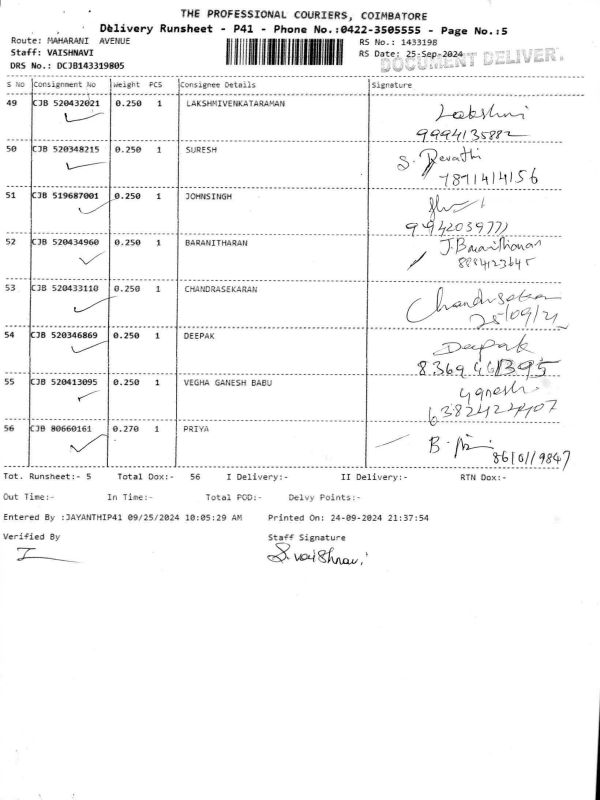 THE PROFESSIONAL COURIERS, COIMBATORE
Delivery Runsheet - P41 - Phone No.:0422-3505555 - Page No.:5
Route: MAHARANI AVENUE
RS No.: 1433198
Staff: VAISHNAVI
RS Date: 25-Sep-2024
DOCUMENT DELIVER
DRS No.: DCJB143319805
S No Consignment No Weight PCS Consignee Details Signature
49 CJB 520432021 0.250 1 LAKSHMIVENKATARAMAN Lakshmi
9994135882
50 CJB 520348215 0.250 1 SURESH S. Revathi
7871414156
51 CJB 519687001 0.250 1 JOHNSINGH
52 CJB 520434960 0.250 1 BARANITHARAN
8884123645
53 CJB 520433110 0.250 1 CHANDRASEKARAN Chandrasekar
54 CJB 520346869 0.250 1 DEEPAK Deepak
8369461395
55 CJB 520413095 0.250 1 VEGHA GANESH BABU Ganesh
56 CJB 80660161 0.270 1 PRIYA
8610119847
Tot. Runsheet:- 5 Total Dox:- 56 I Delivery:- II Delivery:- RTN Dox:-
Out Time:- In Time:- Total POD:- Delvy Points:-
Entered By :JAYANTHIP41 09/25/2024 10:05:29 AM Printed On: 24-09-2024 21:37:54
Verified By Staff Signature
S.vaiShnavi